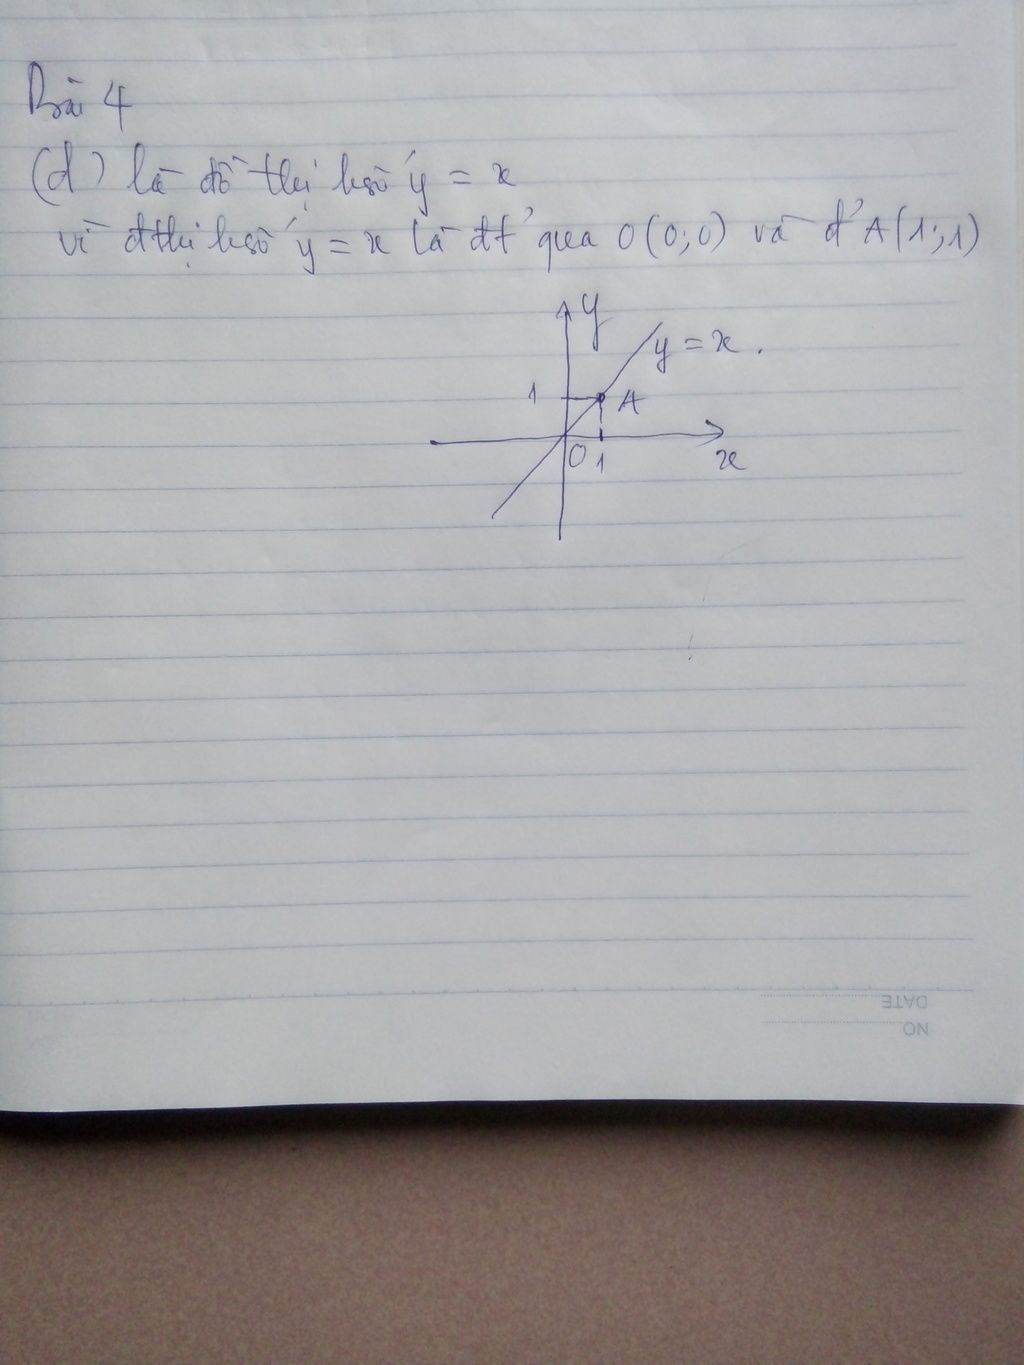 Bài 4
(d) là đồ thị hsố y = x
vì đthị hsố y = x là đt' qua O(0;0) và đ' A(1;1)
y
y = x .
1 A
O 1 x
DATE
NO